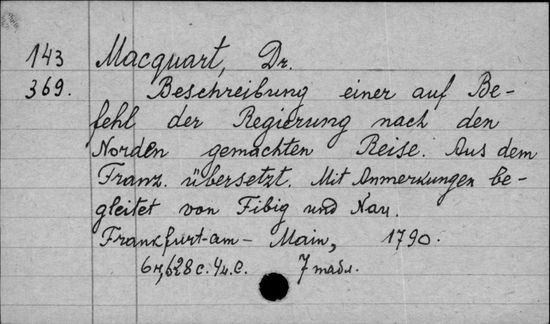 143 Macquart, Dr.
369. Beschreibung einer auf Be-
fehl der Regierung nach den
Norden gemachten Reise. Aus dem
Franz. übersetzt. Mit Anmerkungen be-
gleitet von Fibig und Nau.
Frankfurt-am-Main, 1790.
628 с. 4 н.с. 7 табл.